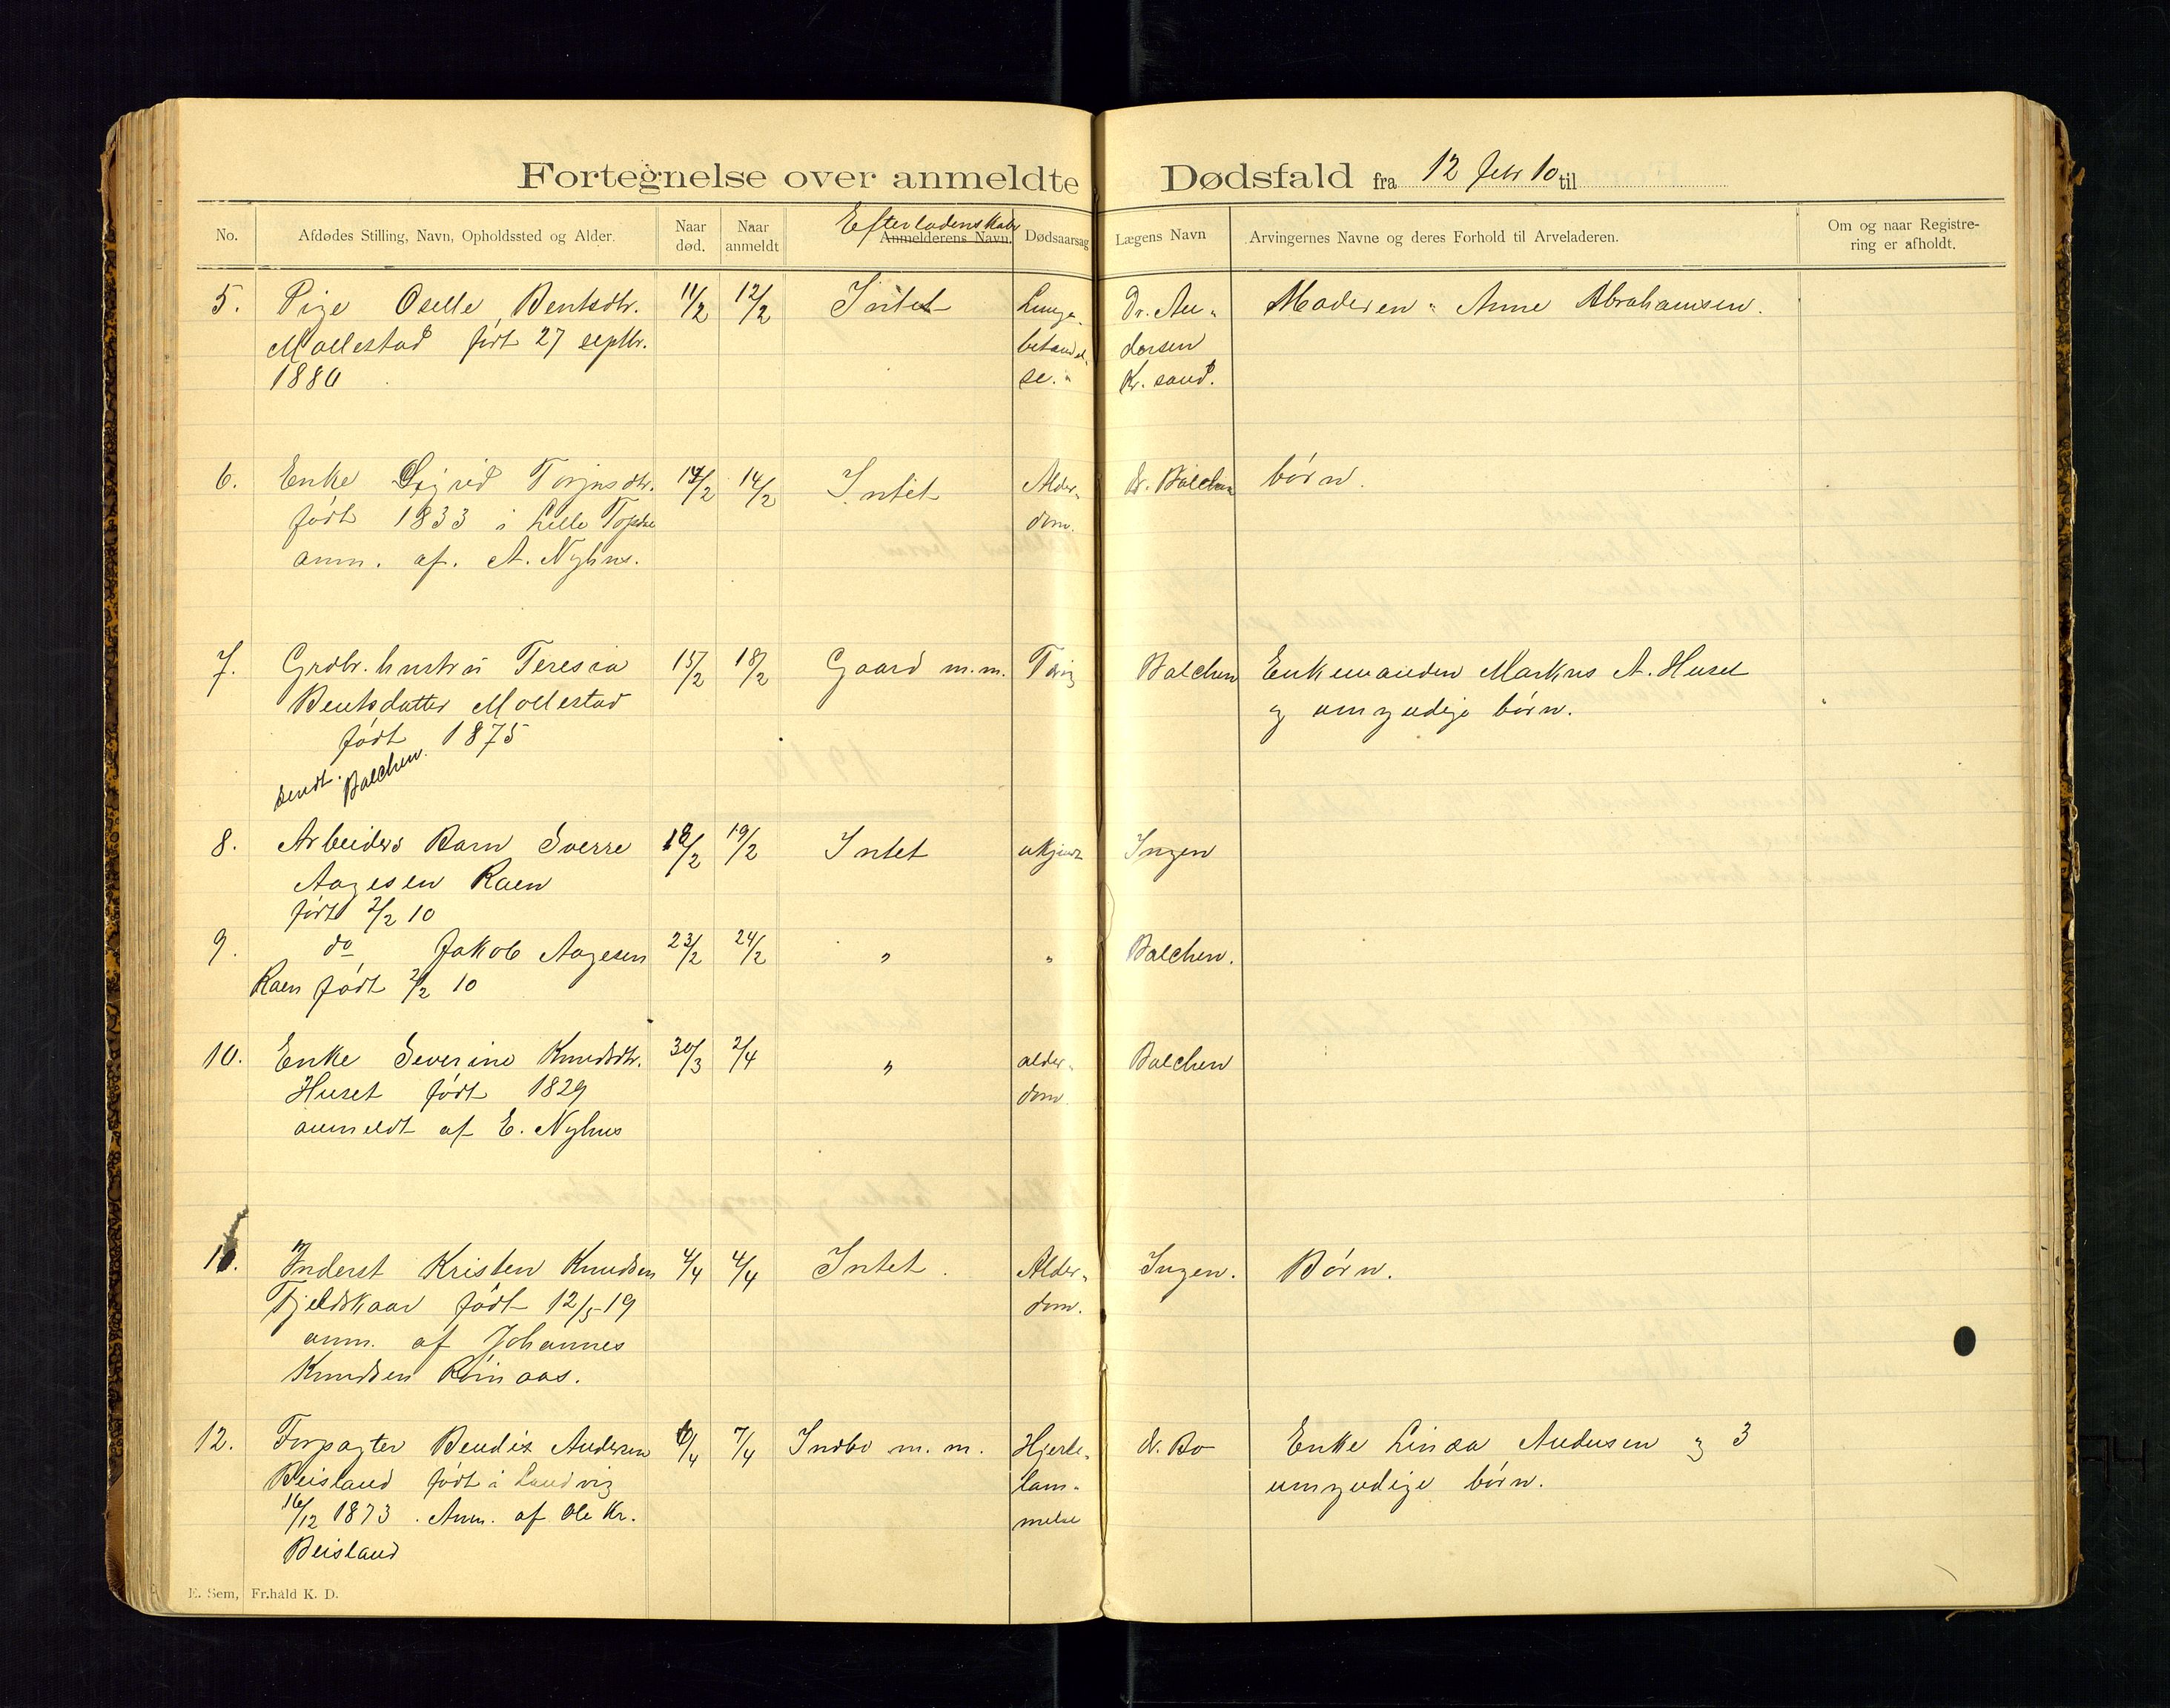 Fortegnelse over anmeldte Dødsfald fra 12 febr 10 til
No. Afdødes Stilling, Navn, Opholdssted og Alder. Naar død. Naar anmeldt Efterladenskab Anmelderens Navn. Dødsaarsag Lægens Navn Arvingernes Navne og deres Forhold til Arveladeren. Om og naar Registrering er afholdt.
5. Pige Oselle Bentsdtr. 11/2 12/2 Intet Lunge- Dr. An- Moderen Anne Abrahamsen.
Mollestad født 27 septbr. betændel- dersen
1880 se. Kr. sand.
6. Enke Sigrid Torjusdtr. 14/2 14/2 Intet Alder- dr. Balchen børn.
født 1833 i Lille Topdal dom.
anm. af. A. Nyhus.
7. Grdbr. hustru Teresia 15/2 18/2 Gaard m.m. Tæring Balchen Enkemanden Markus A. Huset
Bentsdatter Mollestad og umyndige børn.
født 1875
sendt Balchen.
8. Arbeiders Barn Sverre 18/2 19/2 Intet ukjendt Ingen
Aagesen Raen
født 2/2 10
9. do Jakob Aagesen 23/2 24/2 " " Balchen.
Raen født 2/2 10
10. Enke Severine Knudsdtr. 30/3 2/4 " alder- Balchen
Huset født 1829 dom
anmeldt af E. Nyhus
11. Inderst Kristen Knudsen 4/4 4/4 Intet. Alder- Ingen. Børn.
Fjeldskaar født 12/5-19 dom.
anm. af Johannes
Knudsen Røinaas.
12. Forpagter Bendix Andersen 6/4 7/4 Indbo m. m. Hjerte- dr. Bo Enke Linda Andersen og 3
Beisland født i Landvig lam- umyndige børn.
16/12 1873. Anm. af Ole Kr. melse
Beisland
E. Sem, Fr.hald K. D.